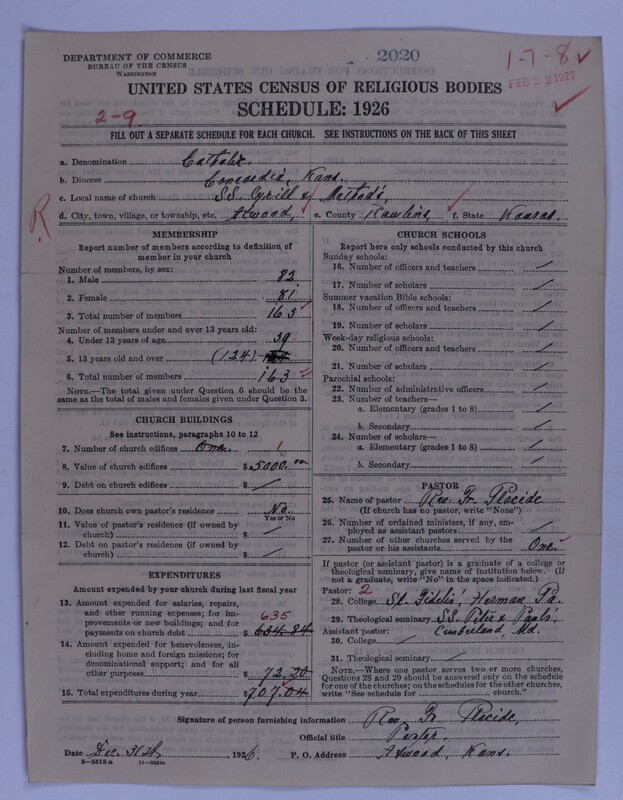 DEPARTMENT OF COMMERCE
BUREAU OF THE CENSUS
WASHINGTON
2020
1-7-8
FEB 23 1927
UNITED STATES CENSUS OF RELIGIOUS BODIES
SCHEDULE: 1926
2-9
FILL OUT A SEPARATE SCHEDULE FOR EACH CHURCH. SEE INSTRUCTIONS ON THE BACK OF THIS SHEET
a. Denomination Catholic.
b. Diocese Concordia, Kans.
c. Local name of church S.S. Cyrill & Methodi,
R
d. City, town, village, or township, etc. Atwood, e. County Rawlins, f. State Kansas.
MEMBERSHIP
Report number of members according to definition of
member in your church
Number of members, by sex:
1. Male 82
2. Female 81
3. Total number of members 163
Number of members under and over 13 years old:
4. Under 13 years of age 39
5. 13 years old and over (124)
6. Total number of members 163
NOTE.—The total given under Question 6 should be
the same as the total of males and females given under Question 3.
CHURCH BUILDINGS
See instructions, paragraphs 10 to 12
7. Number of church edifices One. 1
8. Value of church edifices $5000.00
9. Debt on church edifices $ /
10. Does church own pastor's residence? No.
Yes or No
11. Value of pastor's residence (if owned by
church) $ /
12. Debt on pastor's residence (if owned by
church) $ /
EXPENDITURES
Amount expended by your church during last fiscal year
13. Amount expended for salaries, repairs,
and other running expenses; for im-
provements or new buildings; and for 635
payments on church debt $ 634.84
14. Amount expended for benevolences, in-
cluding home and foreign missions; for
denominational support; and for all
other purposes $ 72.20
15. Total expenditures during year $707.04
CHURCH SCHOOLS
Report here only schools conducted by this church
Sunday schools:
16. Number of officers and teachers /
17. Number of scholars /
Summer vacation Bible schools:
18. Number of officers and teachers /
19. Number of scholars /
Week-day religious schools:
20. Number of officers and teachers /
21. Number of scholars /
Parochial schools:
22. Number of administrative officers /
23. Number of teachers—
a. Elementary (grades 1 to 8) /
b. Secondary /
24. Number of scholars—
a. Elementary (grades 1 to 8) /
b. Secondary /
PASTOR
25. Name of pastor Rev. Fr. Placide
(If church has no pastor, write "None")
26. Number of ordained ministers, if any, em-
ployed as assistant pastors /
27. Number of other churches served by the
pastor or his assistants One.
If pastor (or assistant pastor) is a graduate of a college or
theological seminary, give name of institution below. (If
not a graduate, write "No" in the space indicated.)
Pastor: 2
28. College St. Fidelis', Herman Pa.
29. Theological seminary S.S. Peter & Paul's
Assistant pastor: Cumberland, Md.
30. College /
31. Theological seminary /
NOTE.—Where one pastor serves two or more churches,
Questions 28 and 29 should be answered only on the schedule
for one of the churches; on the schedules for the other churches,
write "See schedule for church."
Signature of person furnishing information Rev. Fr. Placide,
Official title Pastor.
Date Dec. 31st, 1926. P. O. Address Atwood, Kans.
8-5518a 11-9224a